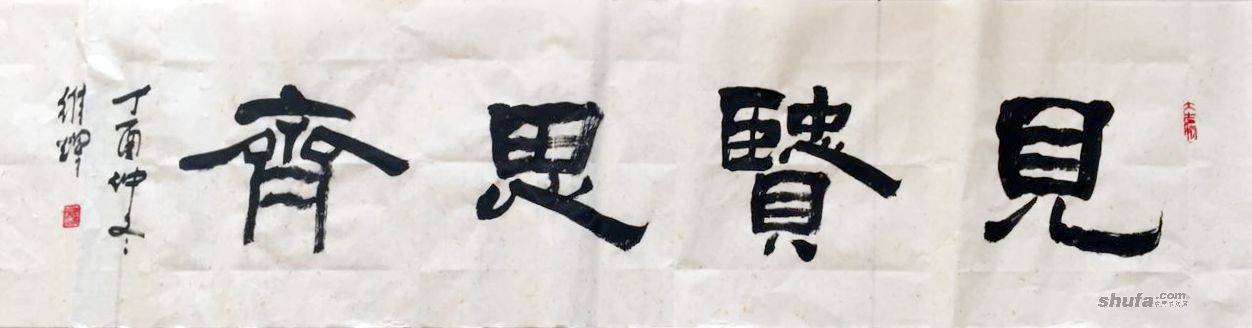 見賢思齊
丁酉仲冬
維輝
shufa.com